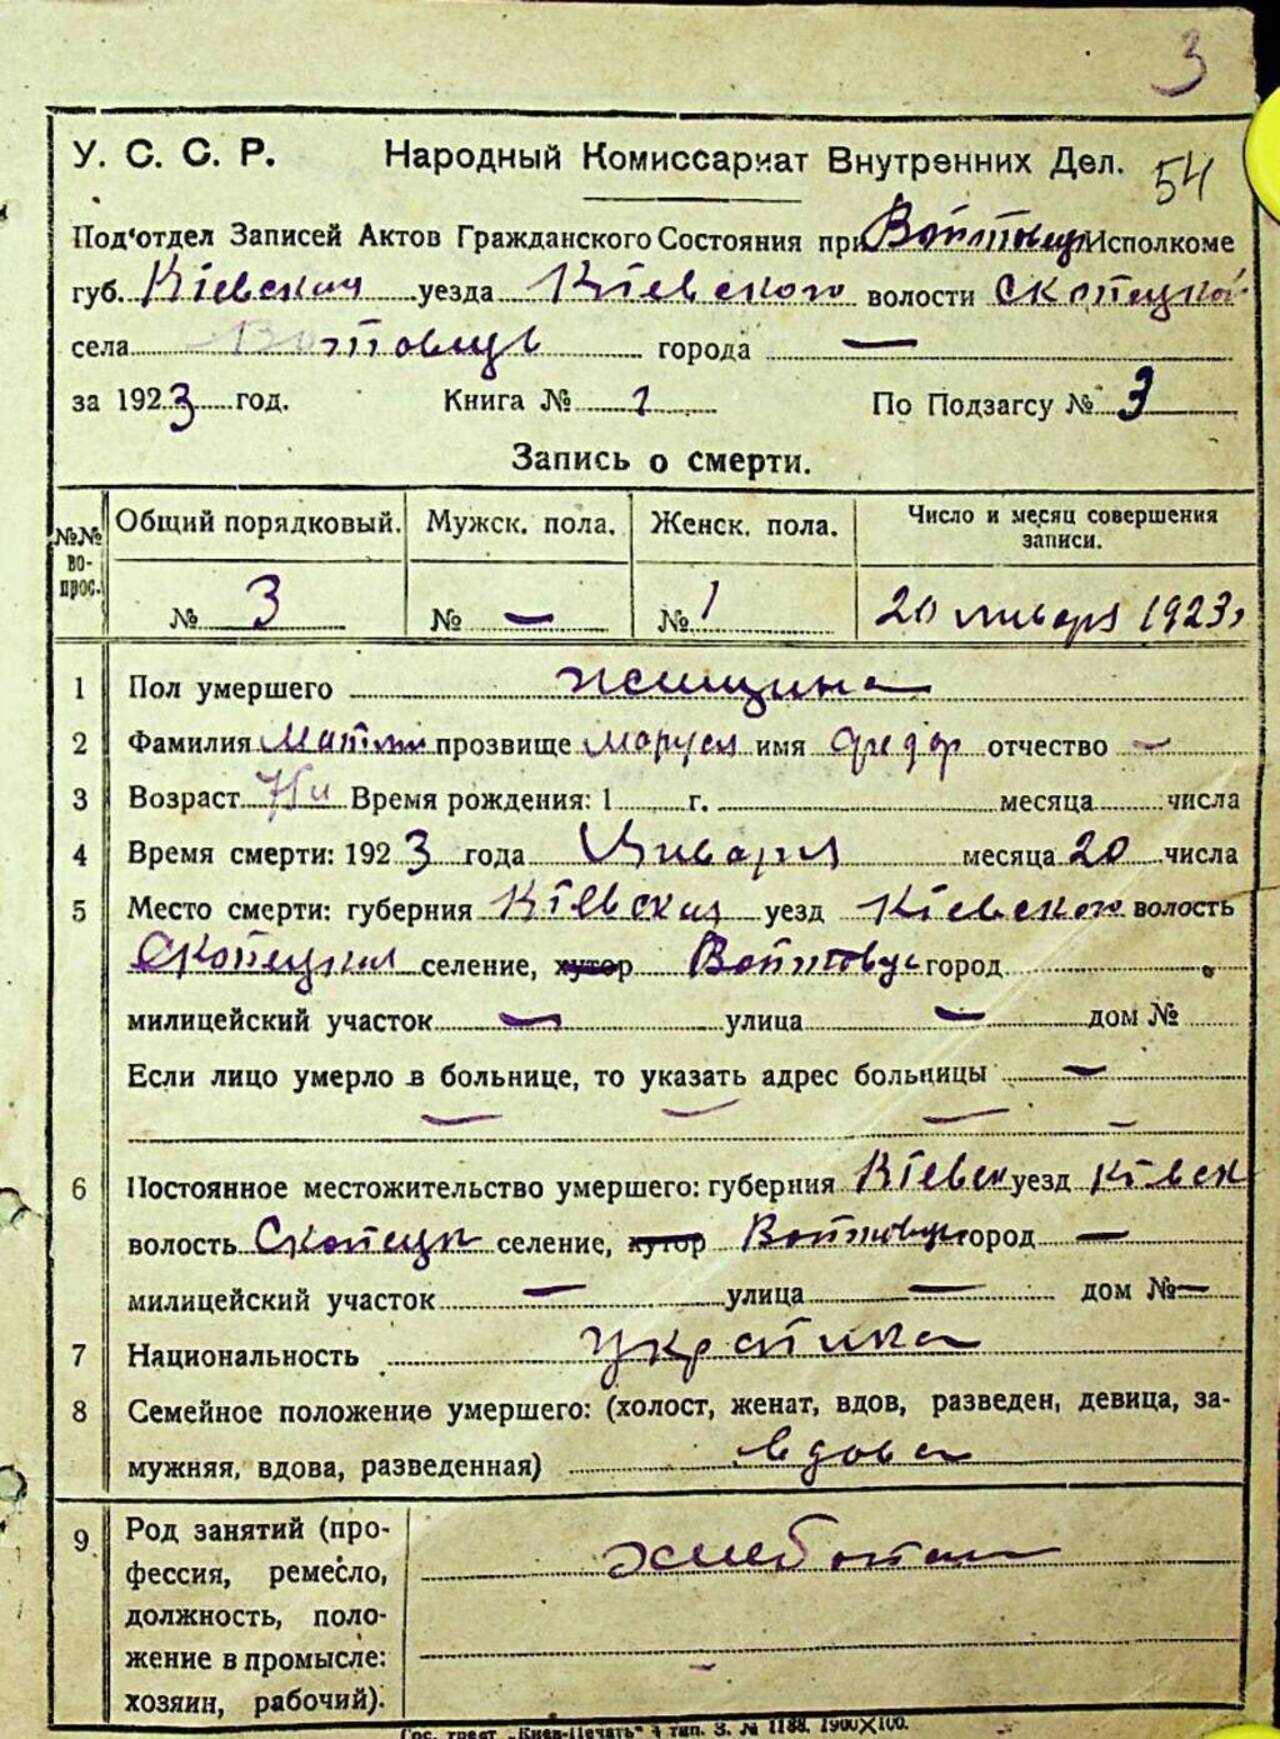 3
У. С. С. Р. Народный Комиссариат Внутренних Дел. 54
Под'отдел Записей Актов Гражданского Состояния при Войтовц Исполкоме
губ. Кіевская уезда Кіевского волости Скопецкой
села Войтовцъ города —
за 1923 год. Книга № 1 По Подзагсу № 3
Запись о смерти.
№№ вопрос. Общий порядковый. Мужск. пола. Женск. пола. Число и месяц совершения записи.
№ 3 № — № 1 20 января 1923
1 Пол умершего женщина
2 Фамилия прозвище Маруся имя Федор отчество —
3 Возраст Время рождения: 1 г. месяца числа
4 Время смерти: 1923 года Января месяца 20 числа
5 Место смерти: губерния Кіевская уезд Кіевского волость
Скопецкая селение, хутор Войтовц город
милицейский участок — улица — дом №
Если лицо умерло в больнице, то указать адрес больницы —
— — — —
6 Постоянное местожительство умершего: губерния Кіевск уезд Кіевск
волость Скопецк селение, хутор Войтовц город —
милицейский участок — улица — дом № —
7 Национальность Українка
8 Семейное положение умершего: (холост, женат, вдов, разведен, девица, за-
мужняя, вдова, разведенная) вдова
9 Род занятий (про-
фессия, ремесло,
должность, поло-
жение в промысле:
хозяин, рабочий).
Гос. трест „Киев-Печать" 4 тип. З. № 1188. 1900×100.